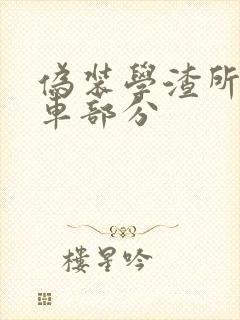 偽裝學渣所
車部分
樓星吟